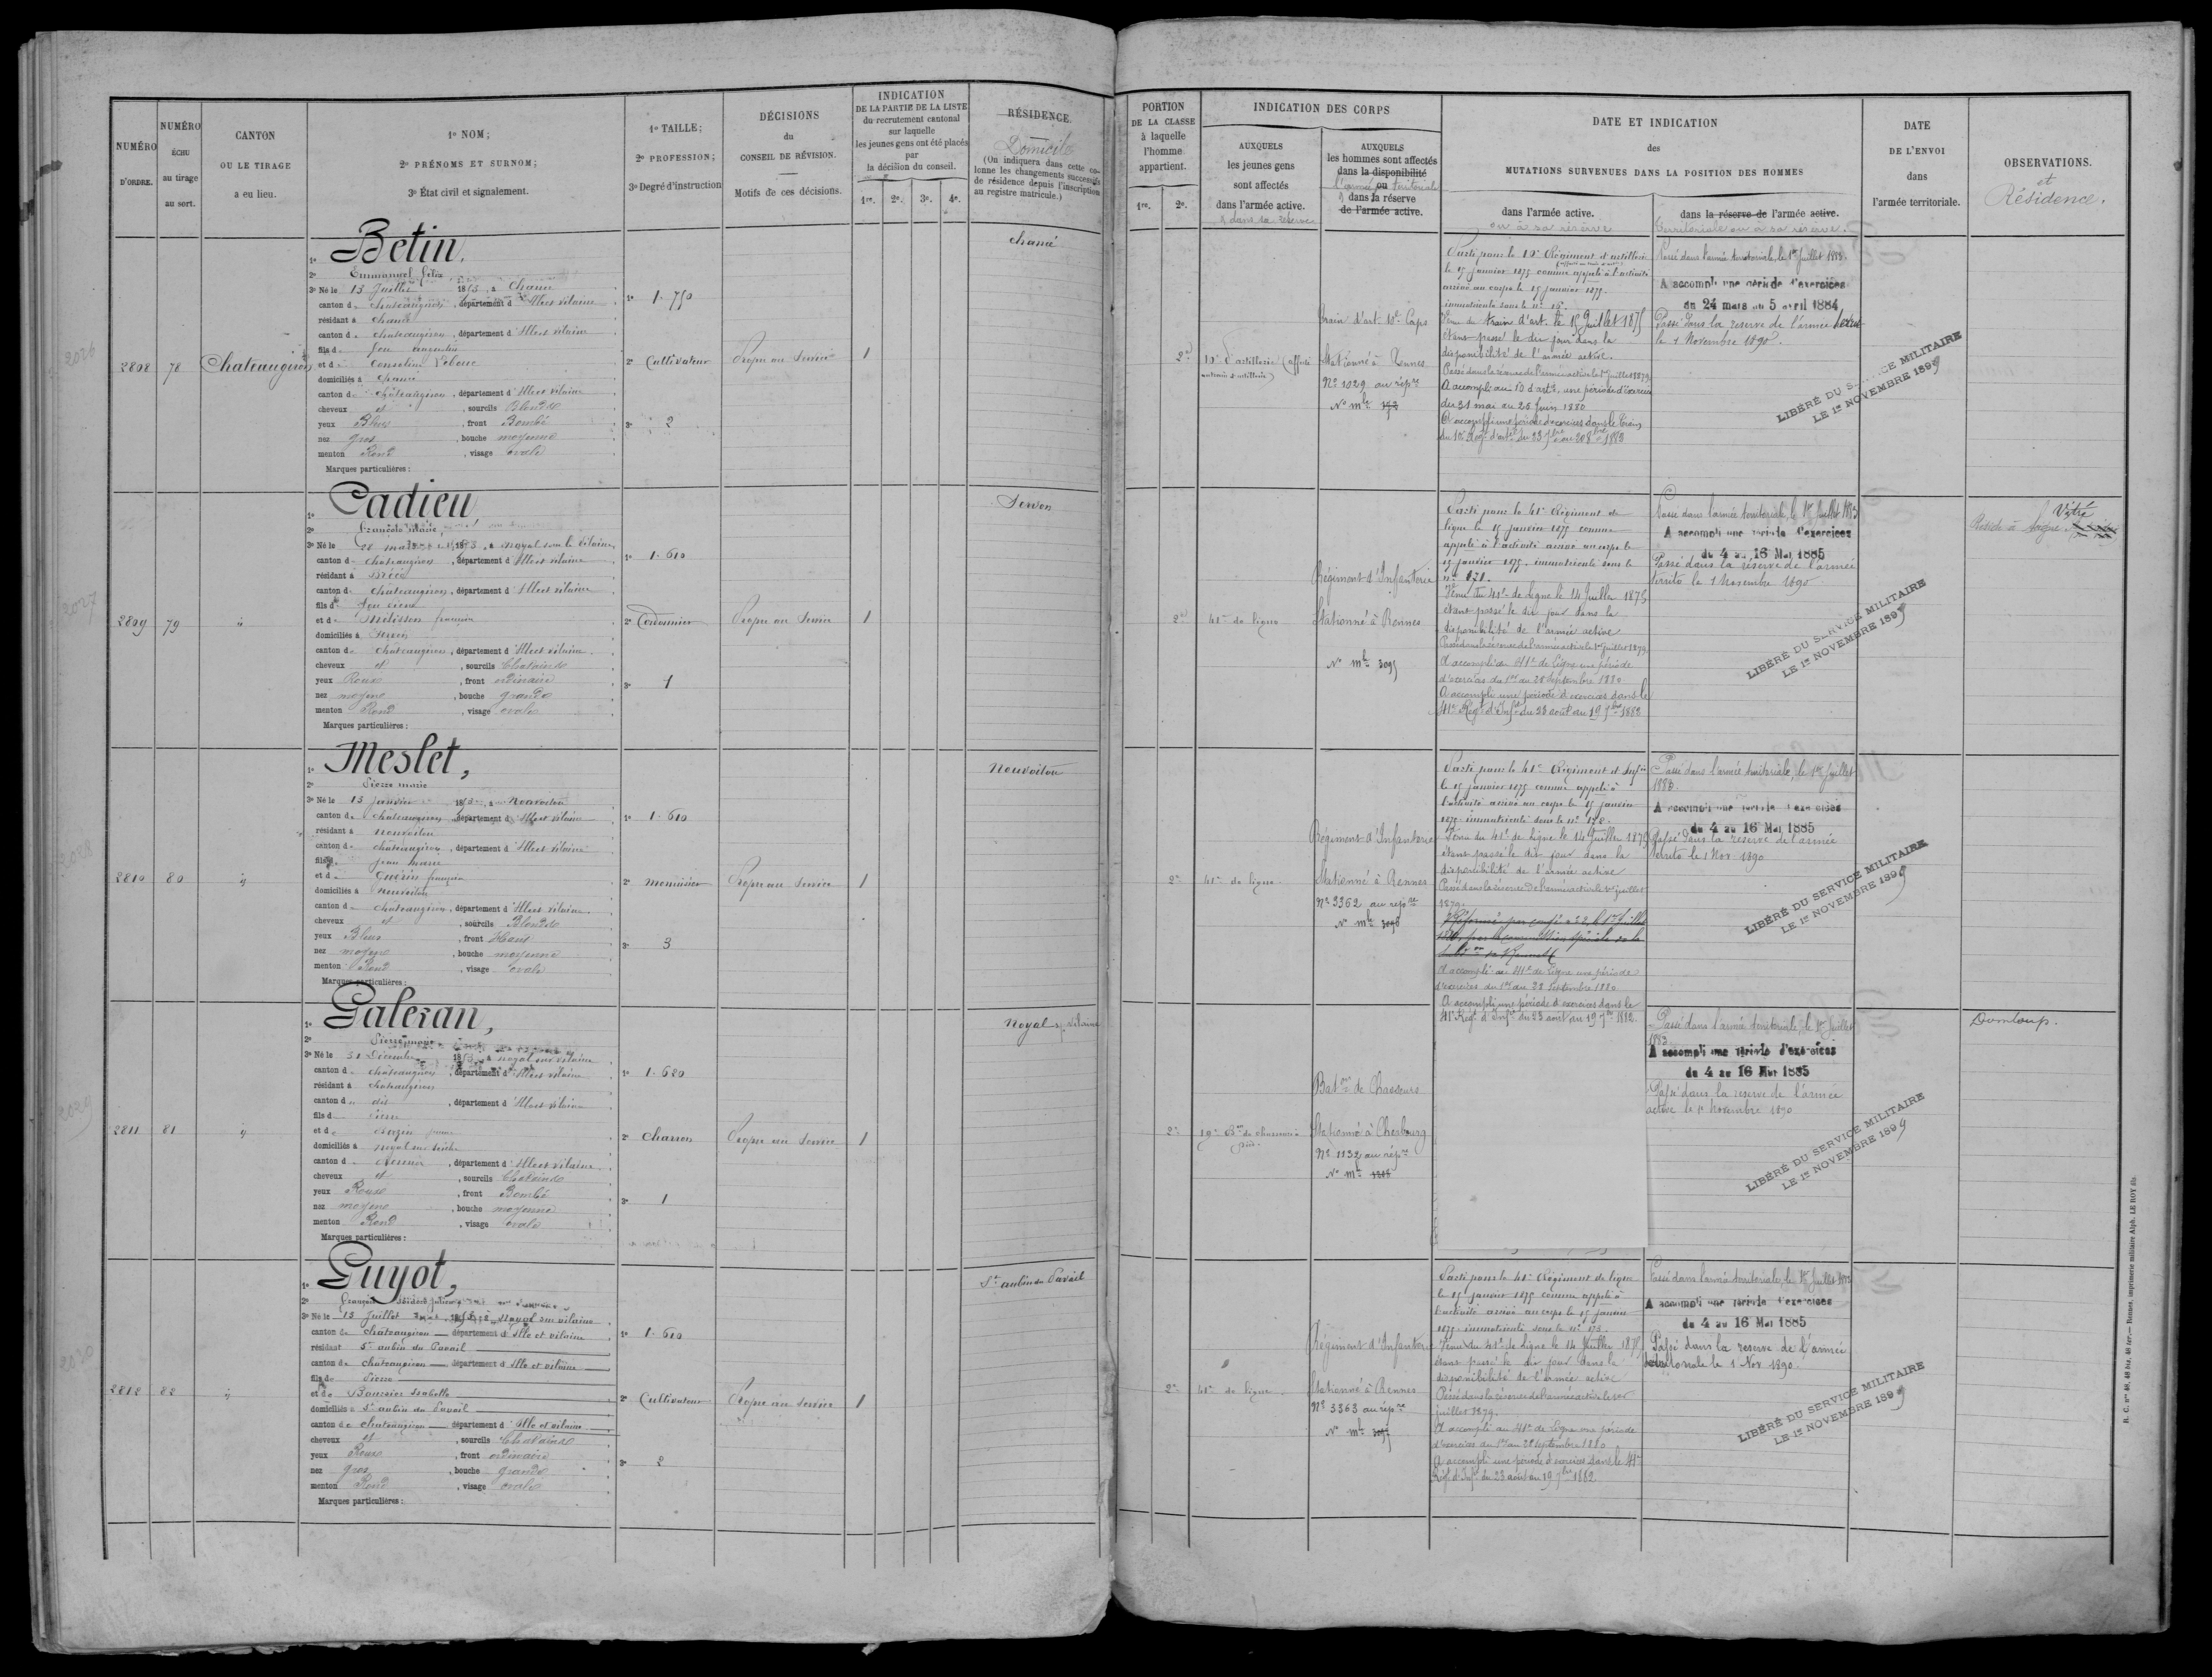 NUMÉRO
D'ORDRE.
NUMÉRO
ÉCHU
au tirage
au sort.
CANTON
OU LE TIRAGE
a eu lieu.
1º NOM;
2º PRÉNOMS ET SURNOM;
3º État civil et signalement.
1º TAILLE;
2º PROFESSION;
3º Degré d'instruction
DÉCISIONS
du
CONSEIL DE RÉVISION.
Motifs de ces décisions.
INDICATION
DE LA PARTIE DE LA LISTE
du recrutement cantonal
sur laquelle
les jeunes gens ont été placés
par
la décision du conseil.
1re. 2e. 3e. 4e.
RÉSIDENCE
Domicile
(On indiquera dans cette co-
lonne les changements successifs
de résidence depuis l'inscription
au registre matricule.)
2808
78
Chateaugiron
Betin,
Emmanuel félix
3º Né le 13 Juillet 1853, à Chancé
canton de Chateaugiron, département d'Ille et vilaine
résidant à Chancé
canton de chateaugiron, département d'Ille et vilaine
fils de feu
et de
domiciliés à Chancé
canton de châteaugiron, département d'Ille et vilaine
cheveux et, sourcils Blonds
yeux Bleus, front Bombé
nez gros, bouche moyenne
menton Rond, visage ovale
Marques particulières :
1º 1.750
2º Cultivateur
3º 2
Propre au Service
1
chancé
2809
79
Cadieu
3º Né le 28 1853, à noyal sur vilaine
canton de chateaugiron, département d'Ille et vilaine
résidant à Brécé
canton de châteaugiron, département d'Ille et vilaine
fils de feu Pierre
et de
domiciliés à Servon
canton de châteaugiron, département d'Ille et vilaine
cheveux et, sourcils Chatains
yeux Roux, front ordinaire
nez moyen, bouche grande
menton Rond, visage ovale
Marques particulières :
1º 1.610
2º Cordonnier
3º 1
Propre au Service
1
Servon
2810
80
Meslet,
Pierre marie
3º Né le 13 Janvier 1853, à Nouvoitou
canton de châteaugiron, département d'Ille et vilaine
résidant à nouvoitou
canton de châteaugiron, département d'Ille et vilaine
fils de jean marie
et de Guérin françoise
domiciliés à nouvoitou
canton de châteaugiron, département d'Ille et vilaine
cheveux et, sourcils Blonds
yeux Bleus, front Haut
nez moyen, bouche moyenne
menton Rond, visage ovale
Marques particulières :
1º 1.610
2º menuisier
3º 3
Propre au Service
1
Nouvoitou
2811
81
Galeran,
Pierre marie
3º Né le 31 Décembre 1853, à noyal sur vilaine
canton de châteaugiron, département d'Ille et vilaine
résidant à chateaugiron
canton de dit, département d'Ille et vilaine
fils de Pierre
et de
domiciliés à
canton de, département d'Ille et vilaine
cheveux et, sourcils Chatains
yeux Roux, front Bombé
nez moyen, bouche moyenne
menton Rond, visage ovale
Marques particulières :
1º 1.680
2º Charron
3º 1
Propre au Service
1
Noyal s/ vilaine
2812
82
Guyot,
3º Né le 13 Juillet 1853, à Noyal sur vilaine
canton de châteaugiron département d'Ille et vilaine
résidant St aubin du Pavail
canton de chateaugiron département d'Ille et vilaine
fils de Pierre
et de Boursier Isabelle
domiciliés à St aubin du Pavail
canton de chateaugiron département d'Ille et vilaine
cheveux et, sourcils Chatains
yeux Roux, front ordinaire
nez gros, bouche grande
menton Rond, visage ovale
Marques particulières :
1º 1.610
2º Cultivateur
3º 2
Propre au Service
1
St aubin du Pavail
2026
2027
2028
2029
2030
PORTION
DE LA CLASSE
à laquelle
l'homme
appartient.
1re. 2e.
INDICATION DES CORPS
AUXQUELS
les jeunes gens
sont affectés
dans l'armée active.
& dans sa réserve
AUXQUELS
les hommes sont affectés
dans la disponibilité
ou
l'armée territoriale
& dans la réserve
de l'armée active.
DATE ET INDICATION
des
MUTATIONS SURVENUES DANS LA POSITION DES HOMMES
dans l'armée active.
ou à sa réserve
dans la réserve de l'armée active.
territoriale ou à sa réserve.
DATE
DE L'ENVOI
dans
l'armée territoriale.
OBSERVATIONS.
et
Résidence.
2e
Train d'art. 10e Corps
Stationné à Rennes
Nº 1029 au répre
Nº mle
Parti pour le 10e Régiment d'artillerie
le 15 janvier 1875 comme appelé à l'activité
arrivé au corps le 15 janvier 1875.
étant passé le dit jour dans la
disponibilité de l'armée active.
Passé dans la réserve de l'armée active le 1er juillet 1879
A accompli au 10 d'artie une période d'exercices
du 31 mai au 26 Juin 1880
A accompli une période d'exercices dans le train
Passé dans l'armée territoriale, le 1er Juillet 1883.
A accompli une période d'exercices
du 24 mars au 5 avril 1884
Passé dans la réserve de l'armée territ
le 1 Novembre 1890.
LIBÉRÉ DU SERVICE MILITAIRE
LE 1er NOVEMBRE 1899
2e
41e de ligne
Régiment d'Infanterie
Stationné à Rennes
Nº mle 3095
Parti pour le 41e Régiment de
ligne le 15 janvier 1875 comme
appelé à l'activité arrivé au corps le
15 janvier 1875, immatriculé sous le
Venu du 41e de Ligne le 14 Juillet 1875
étant passé le dit jour dans la
disponibilité de l'armée active
Passé dans la réserve de l'armée active le 1er juillet 1879
A accompli au 41e de Ligne une période
d'exercices du 1er au 28 Septembre 1880
A accompli une période d'exercices dans le
41e Régt d'Infie du 23 août au 19 7bre 1882
Passé dans l'armée territoriale, le 1er Juillet 1883
A accompli une période d'exercices
du 4 au 16 Mai 1885
Passé dans la réserve de l'armée
territo le 1 Novembre 1890
LIBÉRÉ DU SERVICE MILITAIRE
LE 1er NOVEMBRE 1899
Vitré
2e
41e de ligne
Régiment d'Infanterie
Stationné à Rennes
Nº 3362 au répre
Nº mle 3096
Parti pour le 41e Régiment d'Infie
le 15 janvier 1875 comme appelé à
l'activité arrivé au corps le 15 janvier
1875 immatriculé sous le nº 178.
Venu du 41e de Ligne le 14 Juillet 1875
étant passé le dit jour dans la
disponibilité de l'armée active
Passé dans la réserve de l'armée active le 1er juillet
1879.
A accompli au 41e de Ligne une période
d'exercices du 1er au 28 Septembre 1880
A accompli une période d'exercices dans le
41e Régt d'Infie du 23 août au 19 7bre 1882.
Passé dans l'armée territoriale, le 1er Juillet
1883.
A accompli une période d'exercices
du 4 au 16 Mai 1885
Passé dans la réserve de l'armée
territo le 1 Nov 1890
LIBÉRÉ DU SERVICE MILITAIRE
LE 1er NOVEMBRE 1899
2e
19e Bon de chasseurs à
pied.
Baton de Chasseurs
Stationné à Cherbourg
Nº 1132 au répre
Nº mle
Passé dans l'armée territoriale, le 1er Juillet
1883.
A accompli une période d'exercices
du 4 au 16 Mai 1885
Passé dans la réserve de l'armée
active le 1er Novembre 1890
LIBÉRÉ DU SERVICE MILITAIRE
LE 1er NOVEMBRE 1899
Domloup.
2e
41e de ligne
Régiment d'Infanterie
Stationné à Rennes
Nº 3363 au répre
Nº mle
Parti pour le 41e Régiment de ligne
le 15 janvier 1875 comme appelé à
l'activité arrivé au corps le 15 janvier
1875 immatriculé sous le nº 173.
Venu du 41e de Ligne le 14 Juillet 1875
étant passé le dit jour dans la
disponibilité de l'armée active
Passé dans la réserve de l'armée active le 1er
juillet 1879.
A accompli au 41e de Ligne une période
d'exercices du 1er au 28 Septembre 1880
A accompli une période d'exercices dans le 41e
Régt d'Infie du 23 août au 19 7bre 1882
Passé dans l'armée territoriale, le 1er Juillet
A accompli une période d'exercices
du 4 au 16 Mai 1885
Passé dans la réserve de l'armée
territoriale le 1 Nov 1890.
LIBÉRÉ DU SERVICE MILITAIRE
LE 1er NOVEMBRE 1899
Rennes, imprimerie militaire Alph. LE ROY fils.